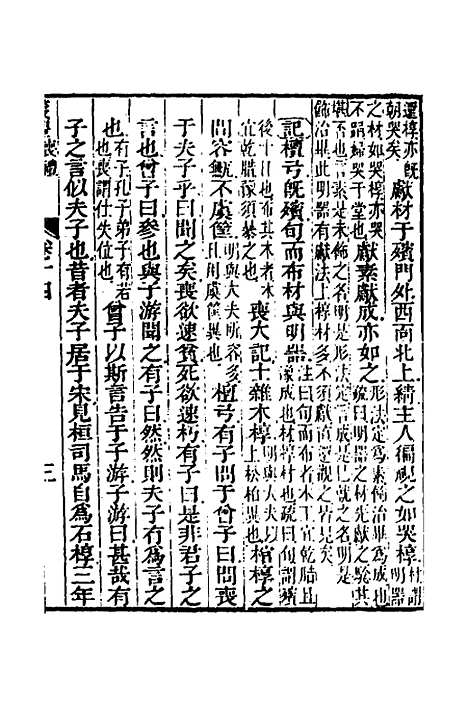 還椁亦既
朝哭矣獻材于殯門外西面北上綪主人徧視之如哭椁材謂
明器
之材如哭椁亦哭
不歸婦哭于堂也獻素獻成亦如之形法定爲素飾治畢爲成也
疏曰明器之材先獻之驗其
堪否也云素是未飾之名明是形法定言成是已就之名明是
飾治畢此明器有獻法上椁材多不須獻直還觀之皆見矣
記檀弓既殯旬而布材與明器注曰旬而布者木工宜乾腊且
豫成也材椁材也疏曰旬謂殯
後十日也布其木者木
宜乾腊須暴之也喪大記士雜木椁明與大夫以
上松柏異也棺椁之
間容甒不虞筐明與大夫所容多
且用虞筐異也檀弓有子問于曾子曰問喪
于夫子乎曰聞之矣喪欲速貧死欲速朽有子曰是非君子之
言也曾子曰參也與子游聞之有子曰然然則夫子有爲言之
也有子孔子弟子有若
也喪謂仕失位也曾子以斯言告于子游子游曰甚哉有
子之言似夫子也昔者夫子居于宋見桓司馬自爲石椁三年
卷十四
三